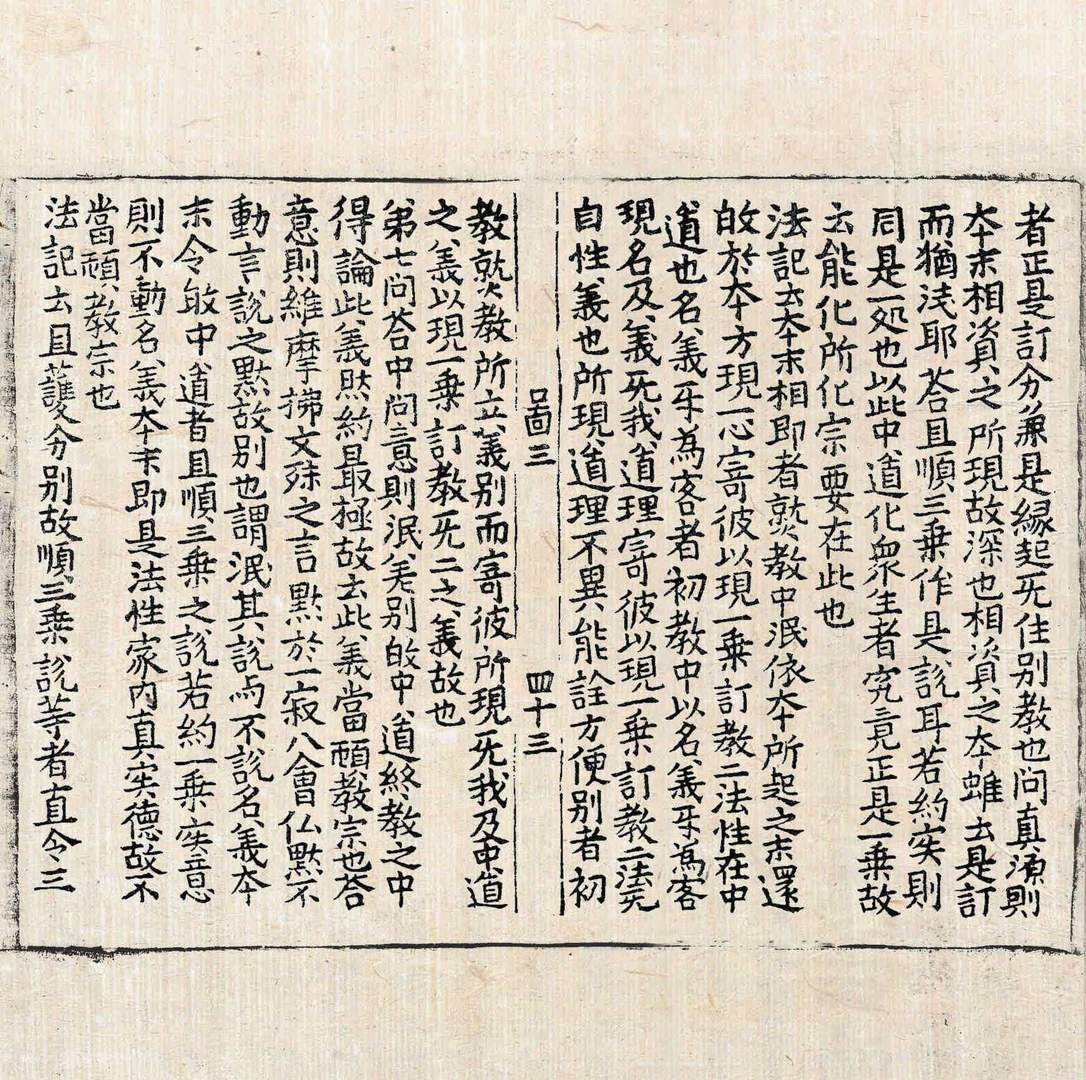 者正是訂分兼是緣起旡住別教也問真源則
夲末相資之所現故深也相資之夲雖云是訂
而猶浅耶荅且順三乗作是說耳若約实則
同是一処也以此中道化衆生者究竟正是一乗故
云能化所化宗要在此也
法記云夲末相即者熟教中泯依夲所起之末還
故於夲方現一心寄彼以現一乗訂教二法性在中
道也名義牙為客者初教中以名義牙為客
現名及義旡我道理寄彼以現一乗訂教二法旡
自性義也所現道理不異能詮方便別者初
圖三 四十三
教熟教所立義別而寄彼所現旡我及中道
之義以現一乗訂教旡二之義故也
苐七问荅中问意則泯差別故中道終教之中
得論此義然約最極故云此義當頓教宗也荅
意則維摩拂文殊之言黙於一寂八會仏黙不
動言說之黙故別也謂泯其說与不說名義夲
末令故中道者且順三乗之說若約一乗实意
則不動名義夲末即是法性家內真实德故不
當頓教宗也
法記云且護分別故順三乗說等者直令三